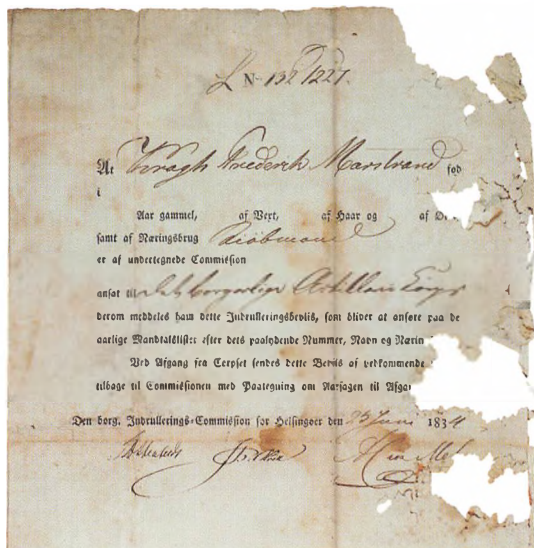 L N 132/1227.
At Kragh Frederik Marstrand fød
i
Aar gammel, af Vext, af Haar og af
samt af Næringsbrug Kiøbmand
er af undertegnede Commission
ansat til det borgerlige Artillerie Corps
derom meddeles ham dette Indrulleringsbeviis, som bliver at anføre paa de
aarlige Mandtalslister efter dets paalydende Nummer, Navn og Nærin
Ved Afgang fra Corpset sendes dette Beviis af vedkommende
tilbage til Commissionen med Paategning om Aarsagen til Afga
Den borg. Indrullerings-Commission for Helsingoer den 25 Juni 1834